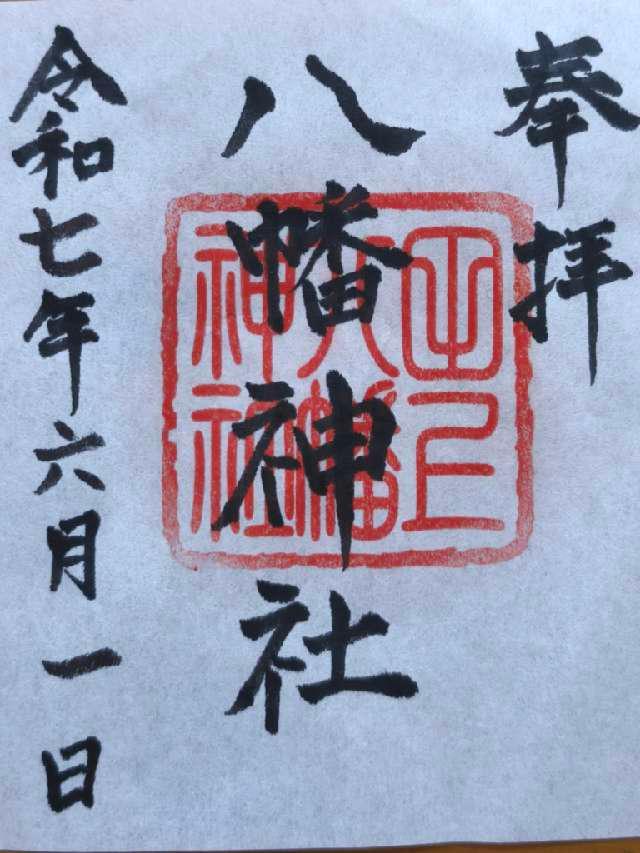 奉拝
八幡神社
令和七年六月一日
八幡
神社